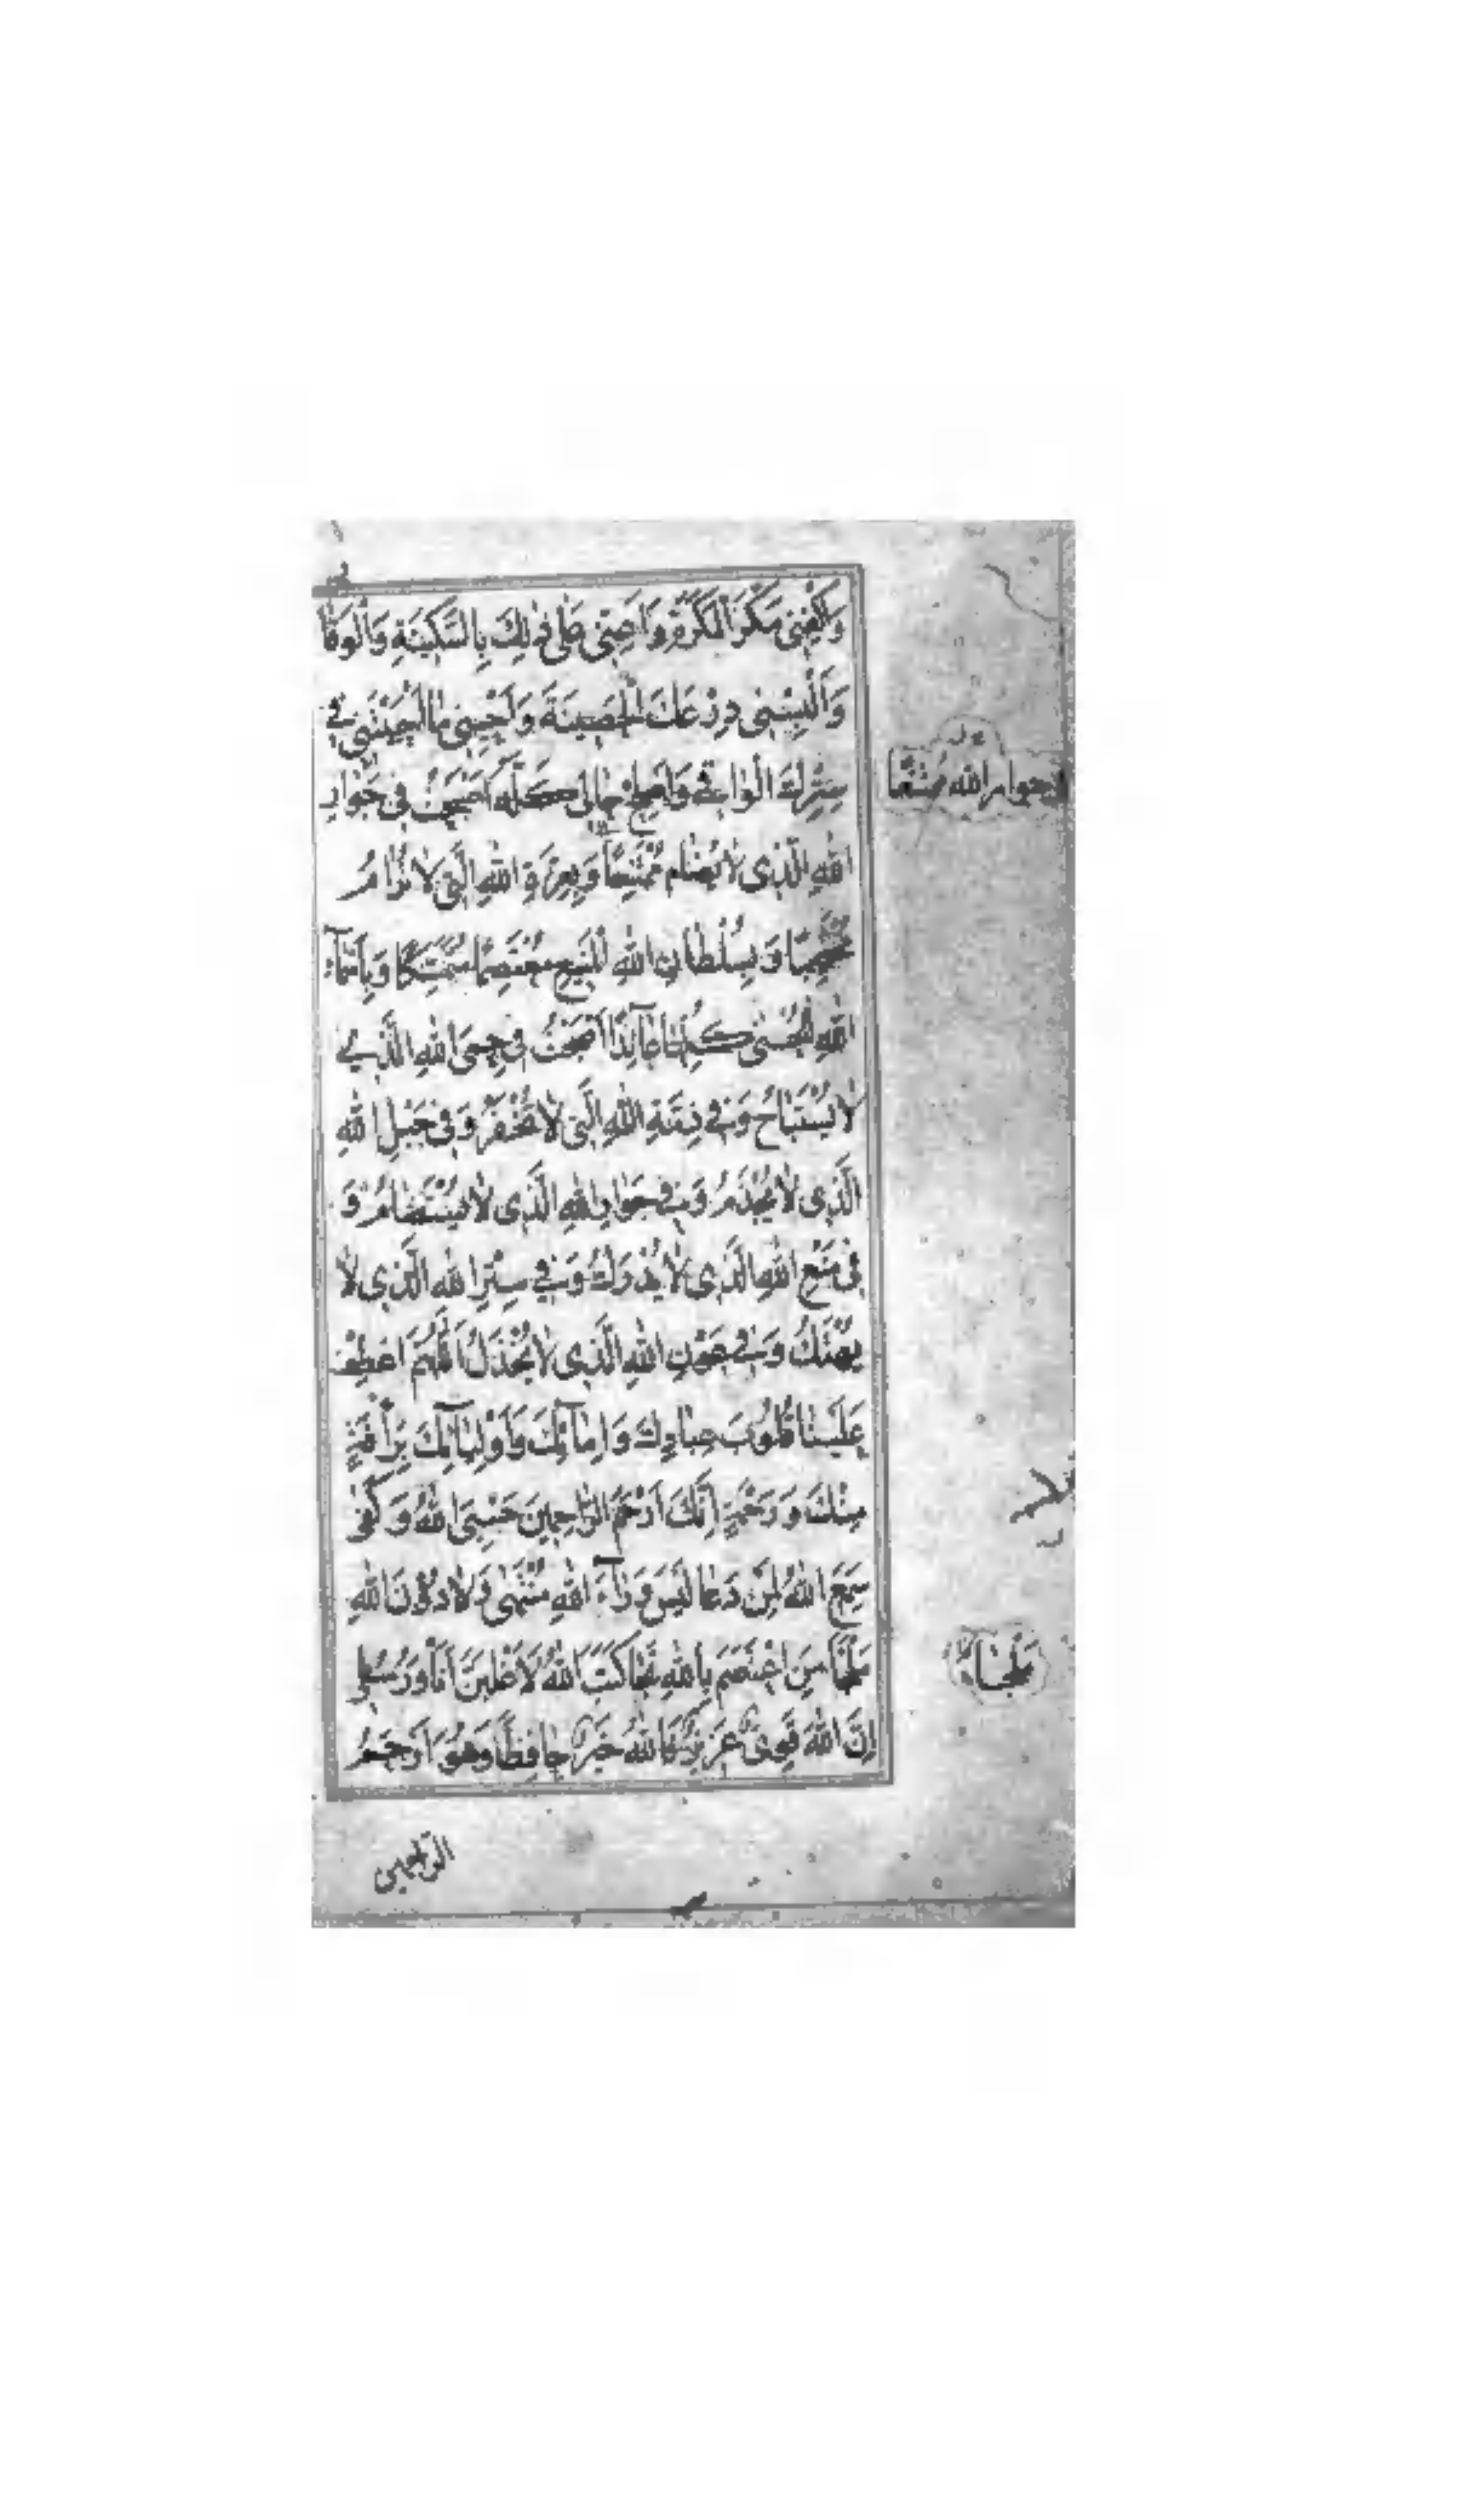 وَاكْفِنِي مَكْرَ الْمَكَرَةِ وَاَعِنِّي عَلٰى ذٰلِكَ بِالسَّكِينَةِ وَالْوَقَا
وَاَلْبِسْنِي دِرْعَكَ الْحَصِينَةَ وَاَحْيِنِي مَا اَحْيَيْتَنِي فِي
سِتْرِكَ الْوَاقِي وَاَصْلِحْ حَالِي كُلَّهُ اَصْبَحْتُ فِي جَوَارِ
اللهِ الَّذِي لَا يُضَامُ مُمْتَنِعًا وَبِعِزَّةِ اللهِ الَّتِي لَا تُرَامُ
مُحْتَجِبًا وَبِسُلْطَانِ اللهِ الْمَنِيعِ مُعْتَصِمًا مُتَمَسِّكًا وَبِاَسْمَآءِ
اللهِ الْحُسْنٰى كُلِّهَا عَآئِذًا اَصْبَحْتُ فِي حِمَى اللهِ الَّذِي
لَا يُسْتَبَاحُ وَفِي ذِمَّةِ اللهِ الَّتِي لَا تُخْفَرُ وَفِي حَبْلِ اللهِ
الَّذِي لَا يُجْذَمُ وَفِي جَوَارِ اللهِ الَّذِي لَا يُسْتَضَامُ وَ
فِي مَنْعِ اللهِ الَّذِي لَا يُدْرَكُ وَفِي سِتْرِ اللهِ الَّذِي لَا
يُهْتَكُ وَفِي عَوْنِ اللهِ الَّذِي لَا يُخْذَلُ اَللّٰهُمَّ اعْطِفْ
عَلَيْنَا قُلُوبَ عِبَادِكَ وَاِمَآئِكَ وَاَوْلِيَآئِكَ بِرَأْفَةٍ
مِنْكَ وَرَحْمَةٍ اِنَّكَ اَرْحَمُ الرَّاحِمِينَ حَسْبِيَ اللهُ وَكَفٰى
سَمِعَ اللهُ لِمَنْ دَعَا لَيْسَ وَرَآءَ اللهِ مُنْتَهٰى وَلَا دُونَ اللهِ
مَلْجَأٌ مَنِ اعْتَصَمَ بِاللهِ نَجَا كَتَبَ اللهُ لَاَغْلِبَنَّ اَنَا وَرُسُلِي
اِنَّ اللهَ قَوِيٌّ عَزِيزٌ فَاللهُ خَيْرٌ حَافِظًا وَهُوَ اَرْحَمُ
الرَّاحِمِين
جوار الله ممتنعًا
مَلْجَأ